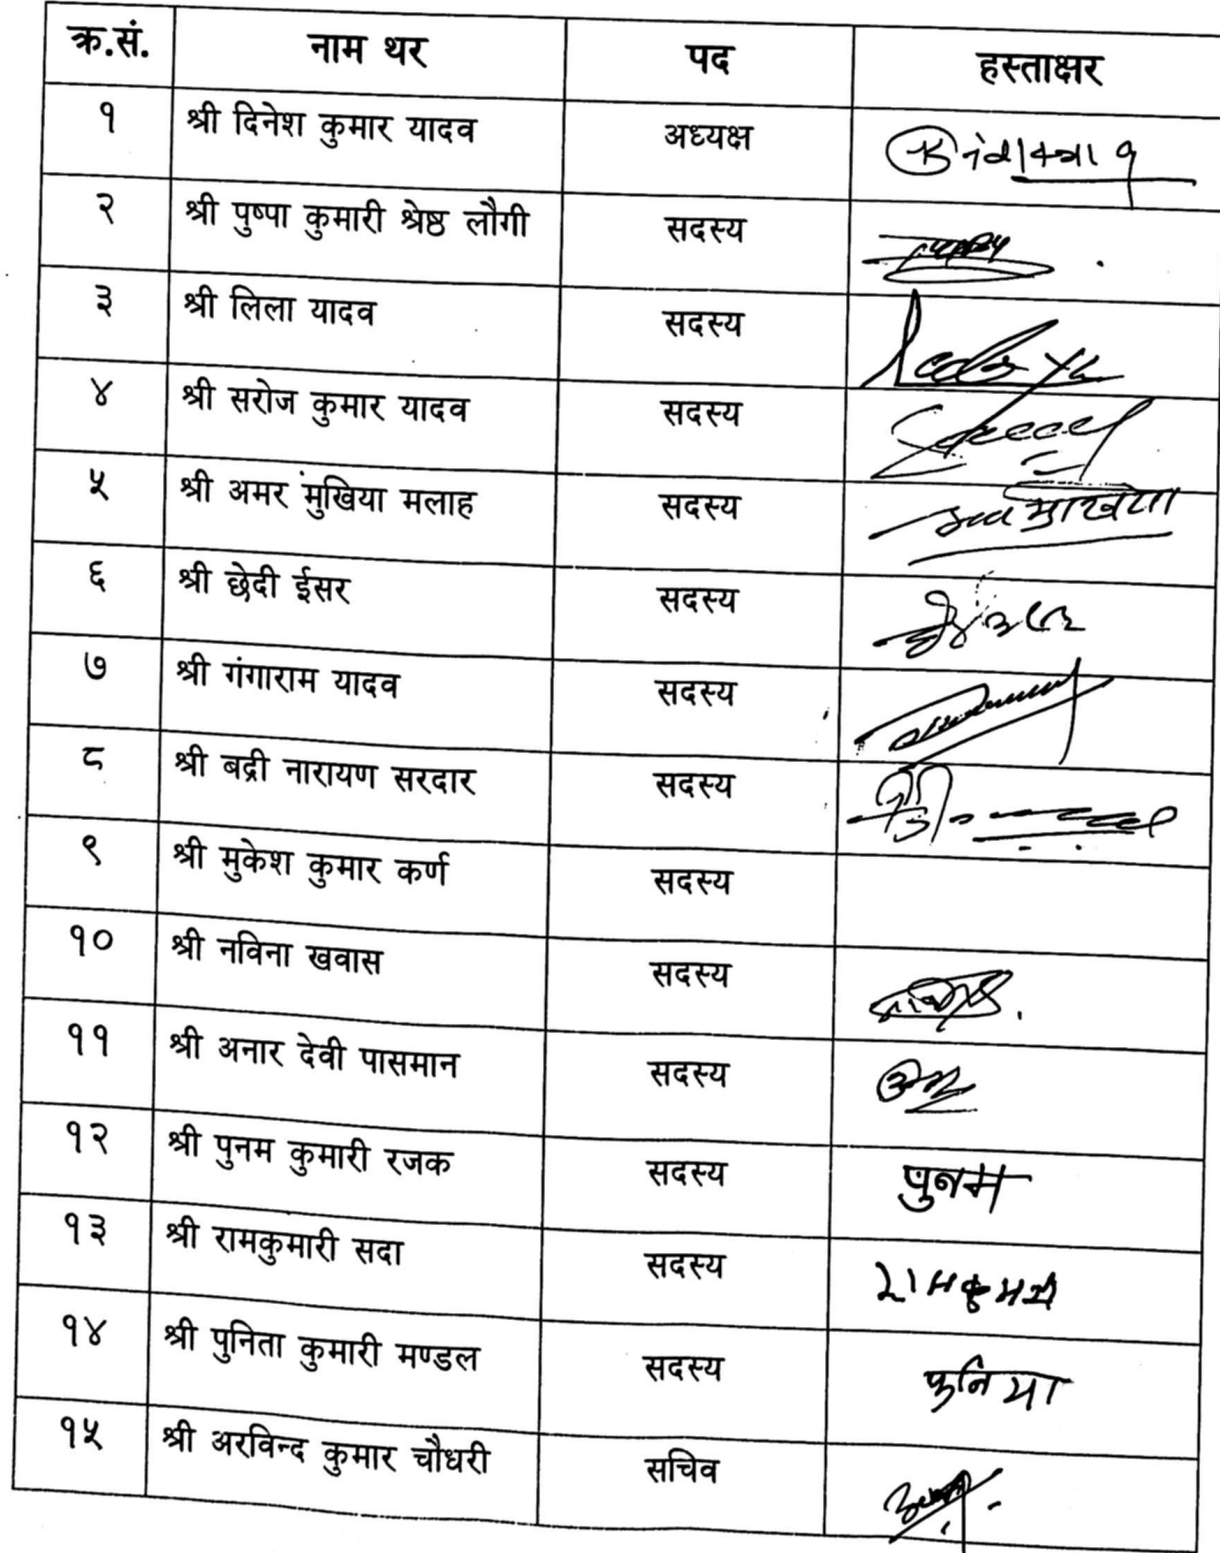 क्र.सं. नाम थर पद हस्ताक्षर
१ श्री दिनेश कुमार यादव अध्यक्ष
२ श्री पुष्पा कुमारी श्रेष्ठ लौगी सदस्य
३ श्री लिला यादव सदस्य
४ श्री सरोज कुमार यादव सदस्य
५ श्री अमर मुंखिया मलाह सदस्य
६ श्री छेदी ईसर सदस्य
७ श्री गंगाराम यादव सदस्य
८ श्री बद्री नारायण सरदार सदस्य
९ श्री मुकेश कुमार कर्ण सदस्य
१० श्री नविना खवास सदस्य
११ श्री अनार देवी पासमान सदस्य
१२ श्री पुनम कुमारी रजक सदस्य पुनम
१३ श्री रामकुमारी सदा सदस्य
१४ श्री पुनिता कुमारी मण्डल सदस्य
१५ श्री अरविन्द कुमार चौधरी सचिव